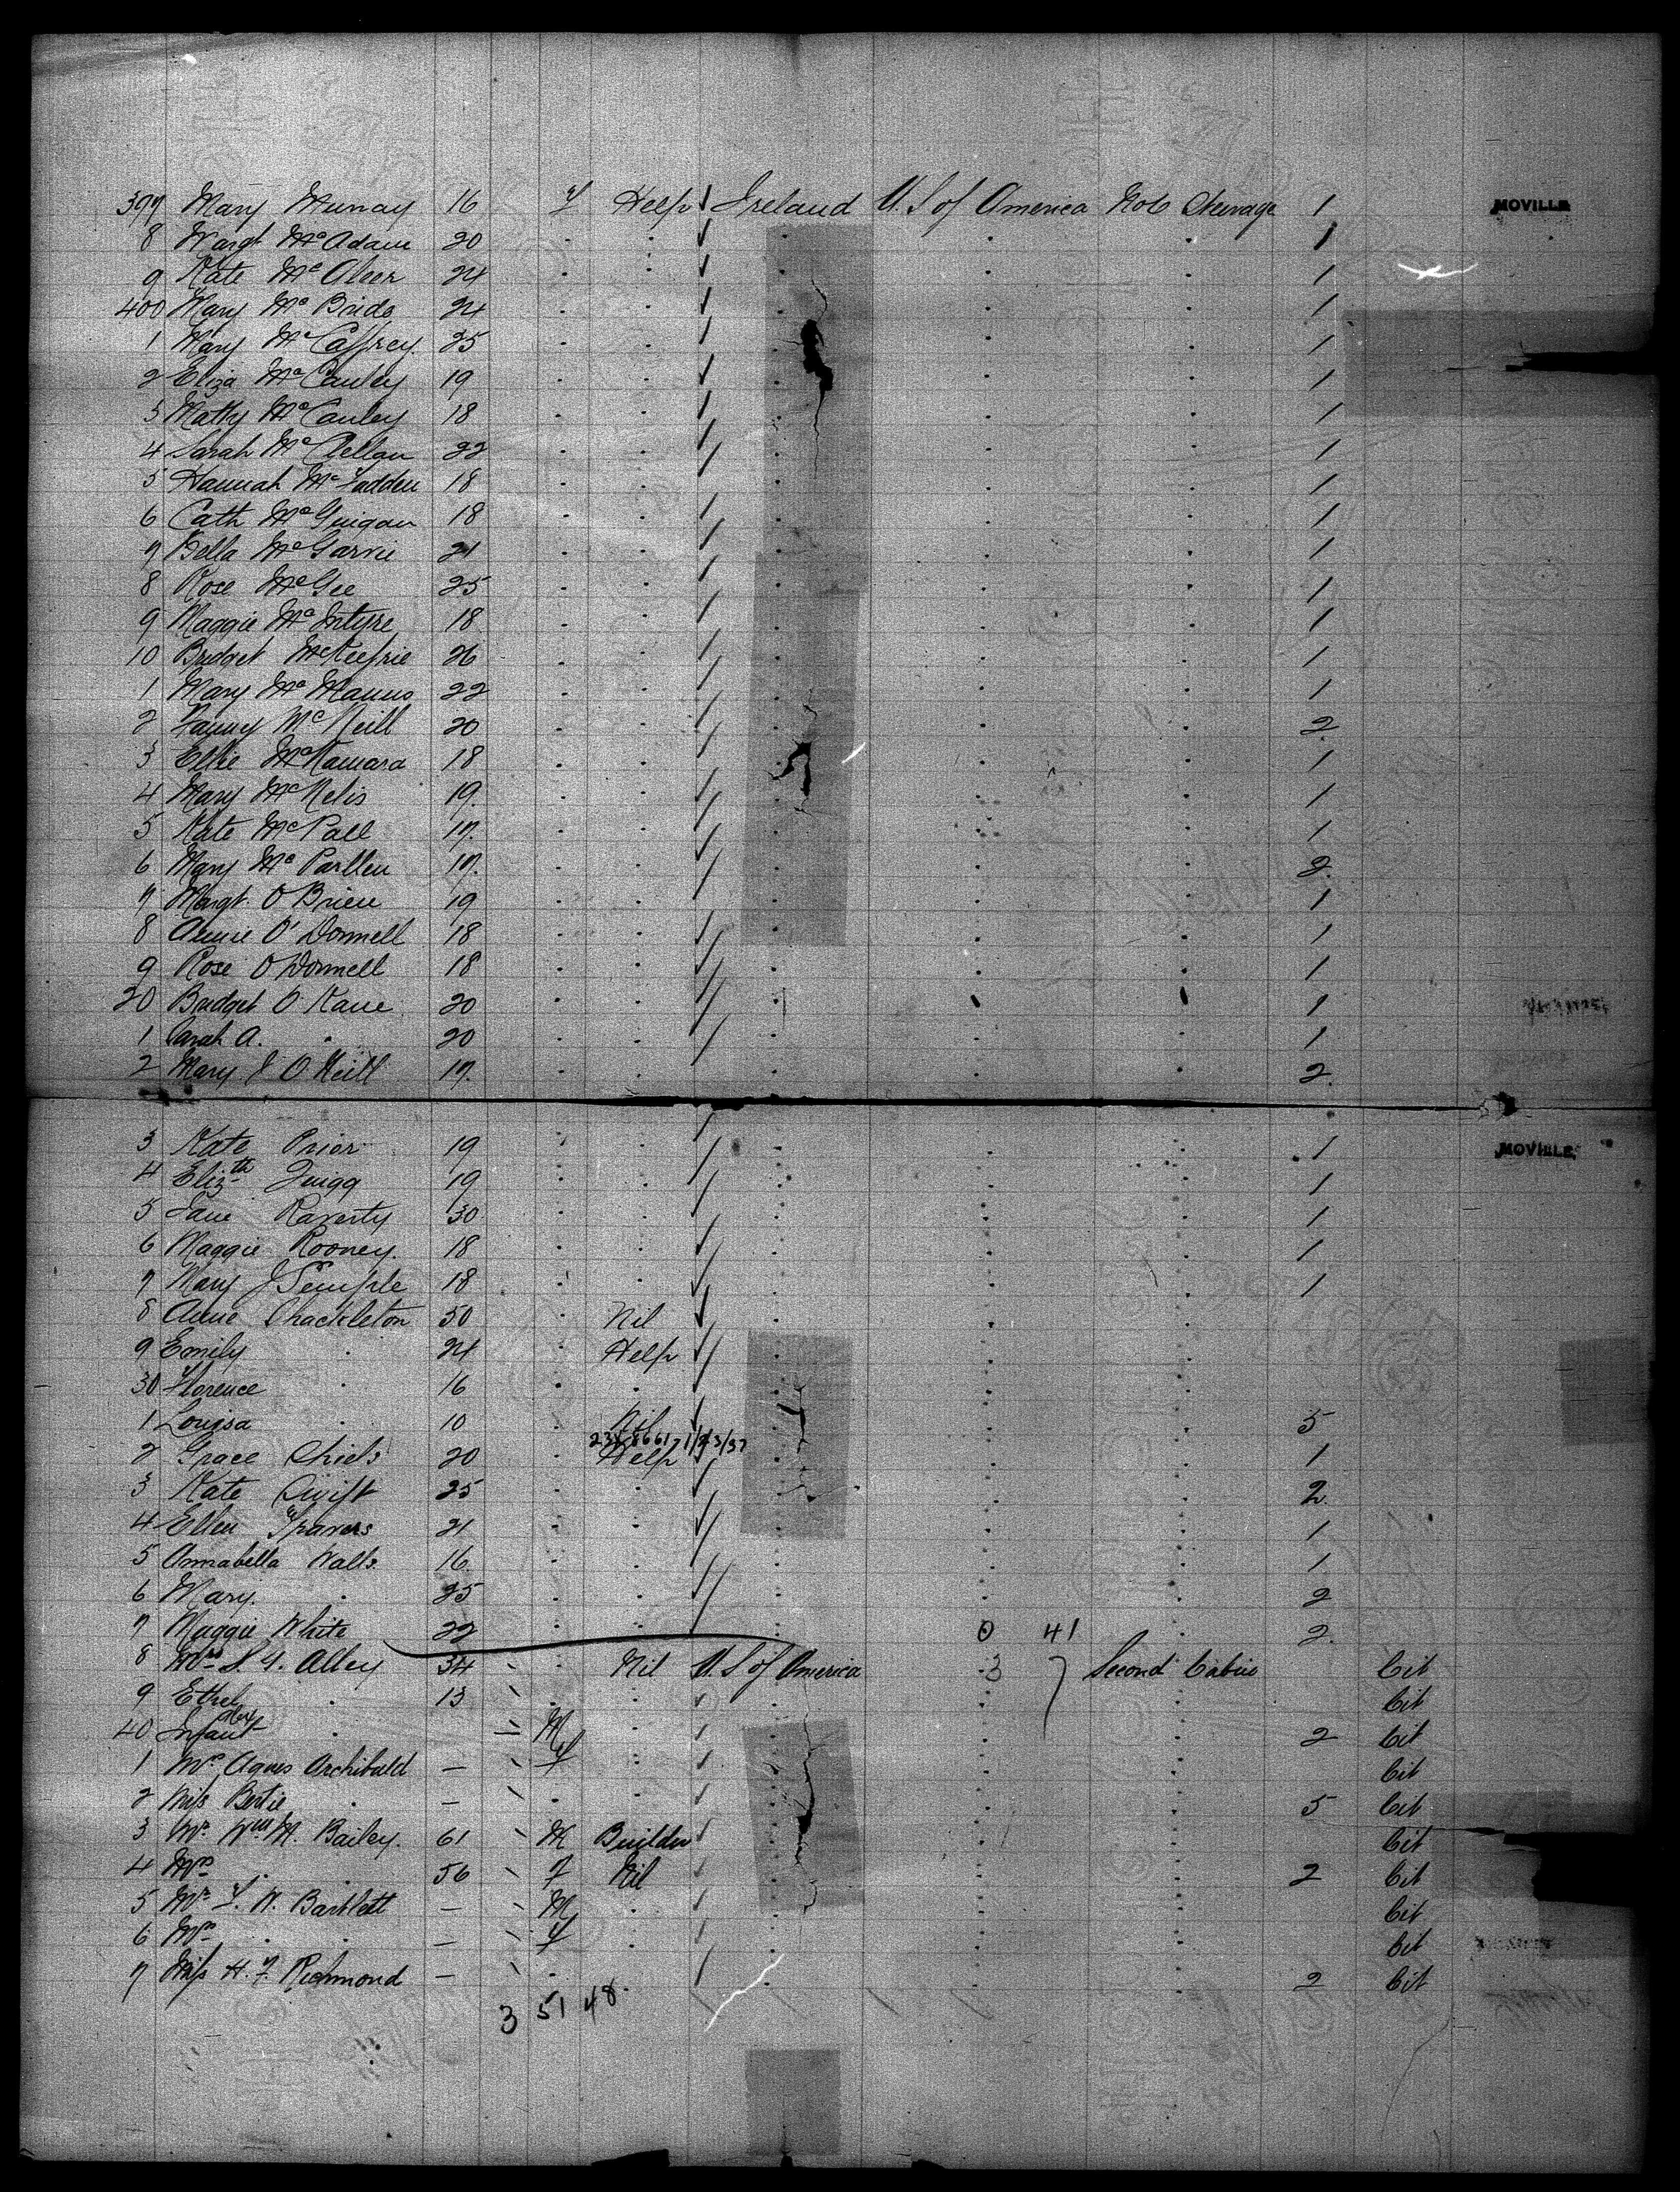 397 Mary Murray 16 f Help Ireland U. S of America No 6 Steerage 1 MOVILLE
8 Margt McAdam 20 1
9 Kate McAleer 24 1
400 Mary McBride 24 1
1 Mary McCaffrey. 25 1
2 Eliza McCauley 19 1
3 Matty McCauley 18 1
4 Sarah McClellan 22 1
5 Hannah McFadden 18 1
6 Cath McGuigan 18 1
7 Bella McGarvie 21 1
8 Rose McGee 25 1
9 Maggie McIntyre 18 1
10 Bridget McKeefrie 26 1
1 Mary McManus 22 1
2 Fanny McNeill 20 2
3 Ellie McNamara 18 1
4 Mary McNelis 19. 1
5 Kate McPall 17. 1
6 Mary McParllen 17. 2
7 Margt. O Brien 19 1
8 Annie O' Donnell 18 1
9 Rose O Donnell 18 1
20 Bridget O Kane 20 1
1 Sarah A. " 20 1
2 Mary J O Neill 17. 2
3 Kate Prior 19 1 MOVILLE
4 Elizth Quigg 19 1
5 Jane Raverty 30 1
6 Maggie Rooney. 18 1
7 Mary J Temple 18 1
8 Annie Shackleton 50 Nil
9 Emily " 24 Help
30 Florence " 16
1 Louisa " 10 Nil 5
2 Grace Shiels 20 Help 1
3 Kate Swift 25 2
4 Ellen Travers 21 1
5 Annabella Walls 16 1
6 Mary. " 25 2
7 Maggie White 22 0 41 2
8 Mrs S. Y. Alley 34 Nil U. S of America 3 Second Cabin Cit
9 Ethel " 13 Cit
40 Infant " M 2 Cit
1 Mrs Agnes Archibald — f Cit
2 Miss Bertie " — 5 Cit
3 Mr. Wm M. Bailey. 61 M Builder Cit
4 Mrs " 56 f Nil 2 Cit
5 Mr F. W. Bartlett — M Cit
6 Mrs " — f Cit
7 Miss H. F. Richmond — 2 Cit
3 51 48